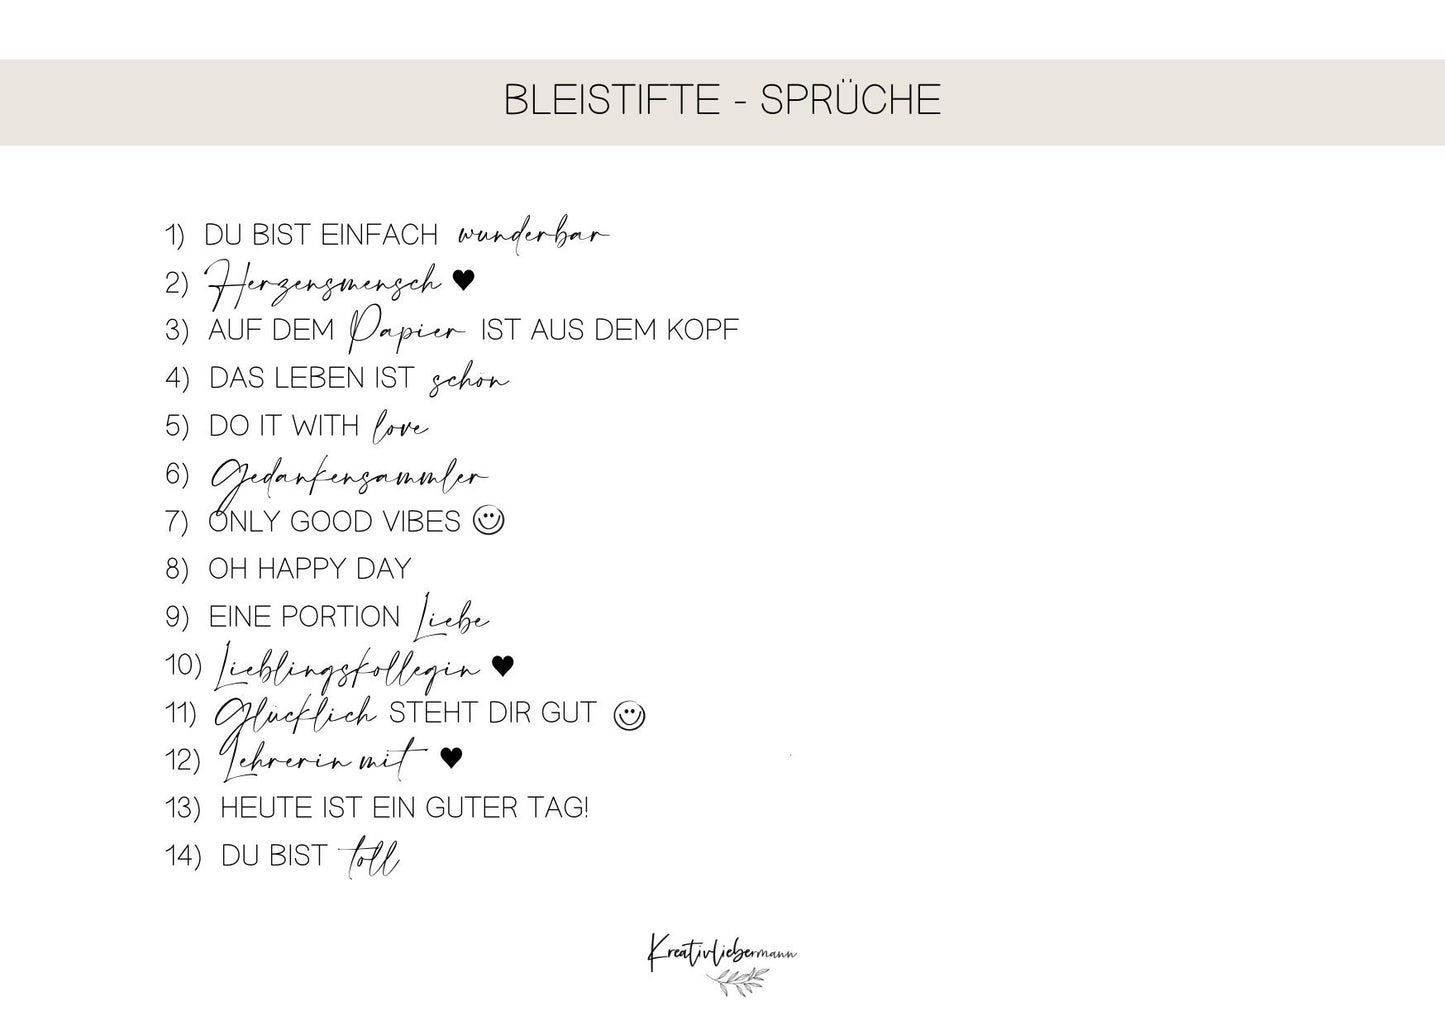 BLEISTIFTE - SPRÜCHE
1) DU BIST EINFACH wunderbar
2) Herzensmensch ♥
3) AUF DEM Papier IST AUS DEM KOPF
4) DAS LEBEN IST schön
5) DO IT WITH love
6) Gedankensammler
7) ONLY GOOD VIBES ☺
8) OH HAPPY DAY
9) EINE PORTION Liebe
10) Lieblingskollegin ♥
11) Glücklich STEHT DIR GUT ☺
12) Lehrerin mit ♥
13) HEUTE IST EIN GUTER TAG!
14) DU BIST toll
Kreativliebermann